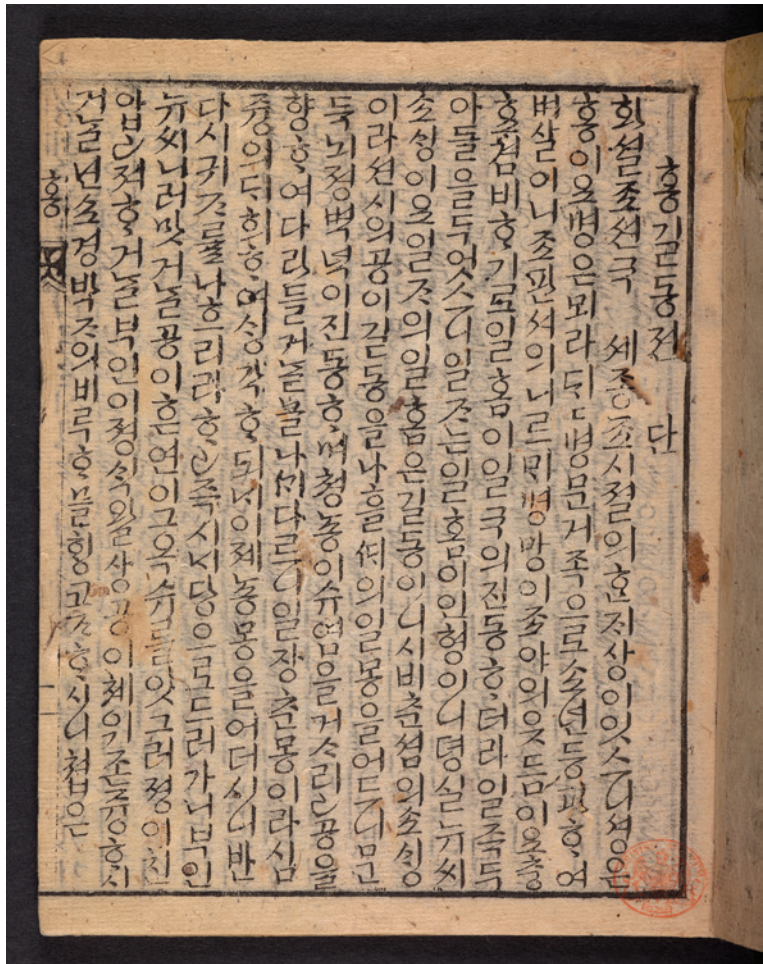 홍길동젼 단
화셜 죠션국 세종조 시졀의 ᄒᆞᆫ ᄌᆡ상이 잇스니 셩은
홍이오 명은 뫼라 ᄃᆡᄃᆡ 명문거족으로 소년등과ᄒᆞ여
벼살이 니조판셔의 니르ᄆᆡ 명망이 조야의 읏듬이오 츙
효겸비ᄒᆞ기로 일홈이 일국의 진동ᄒᆞ더라 일즉 두
아들을 두엇스니 일ᄌᆞ는 일홈이 인형이니 뎡실 뉴씨
소ᄉᆡᆼ이오 일ᄌᆞ의 일홈은 길동이니 시비 츈셤의 소ᄉᆡᆼ
이라 션시의 공이 길동을 나흘 ᄯᆡ의 일몽을 어드니 문
득 뇌졍벽녁이 진동ᄒᆞ며 쳥농이 슈염을 거ᄉᆞ리고 공을
향ᄒᆞ여 다라들거늘 놀나 ᄭᆡ다르니 일장츈몽이라 심
즁의 ᄃᆡ희ᄒᆞ여 ᄉᆡᆼ각ᄒᆞ되 ᄂᆡ 이제 농몽을 어더시니 반
다시 귀ᄌᆞ를 나흐리라 ᄒᆞ고 즉시 ᄂᆡ당으로 드러가니 부인
뉴씨 니러 맛거늘 공이 흔연이 그 옥슈를 잇그러 졍이 친
압고져 ᄒᆞ거늘 부인이 졍ᄉᆡᆨ 왈 상공이 쳬위 존즁ᄒᆞ시
거늘 년소경박ᄌᆞ의 비루ᄒᆞ믈 ᄒᆡᆼ코져 ᄒᆞ시니 쳡은
홍
一